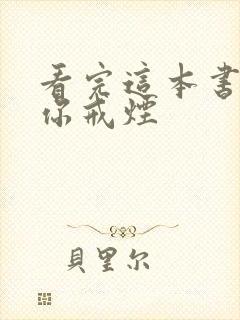 看完這本書
你戒煙
貝里尔